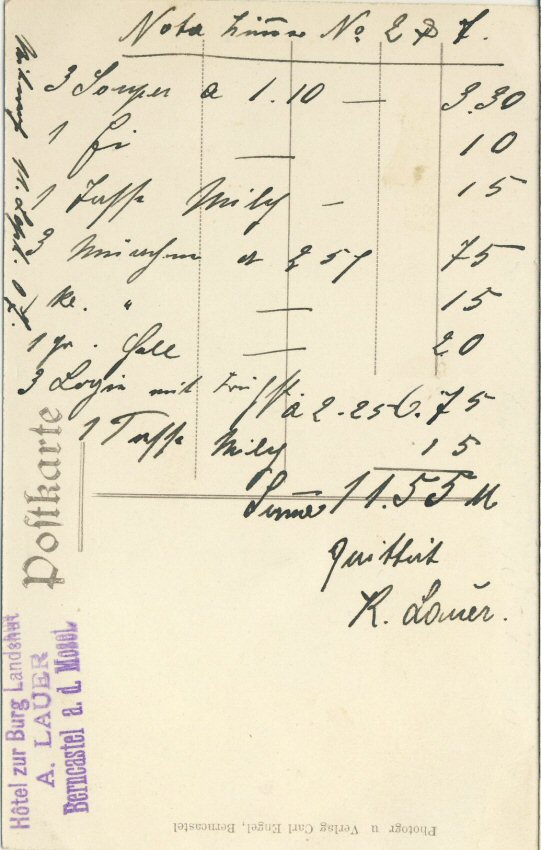 Nota Zimmer No 2 & 7.
3 Souper a 1.10 — 3.30
1 Ei — 10
1 Tasse Milch — 15
3 Münchner a 25 75
1 kl. " — 15
1 gr. Hell — 20
3 Logis mit Früh à 2.25 6.75
1 Tasse Milch 15
Summe 11.55 M
Quittirt
K. Lauer.
Postkarte
Hôtel zur Burg Landshut
A. LAUER
Berncastel a. d. Mosel.
Photogr u Verlag Carl Engel, Berncastel